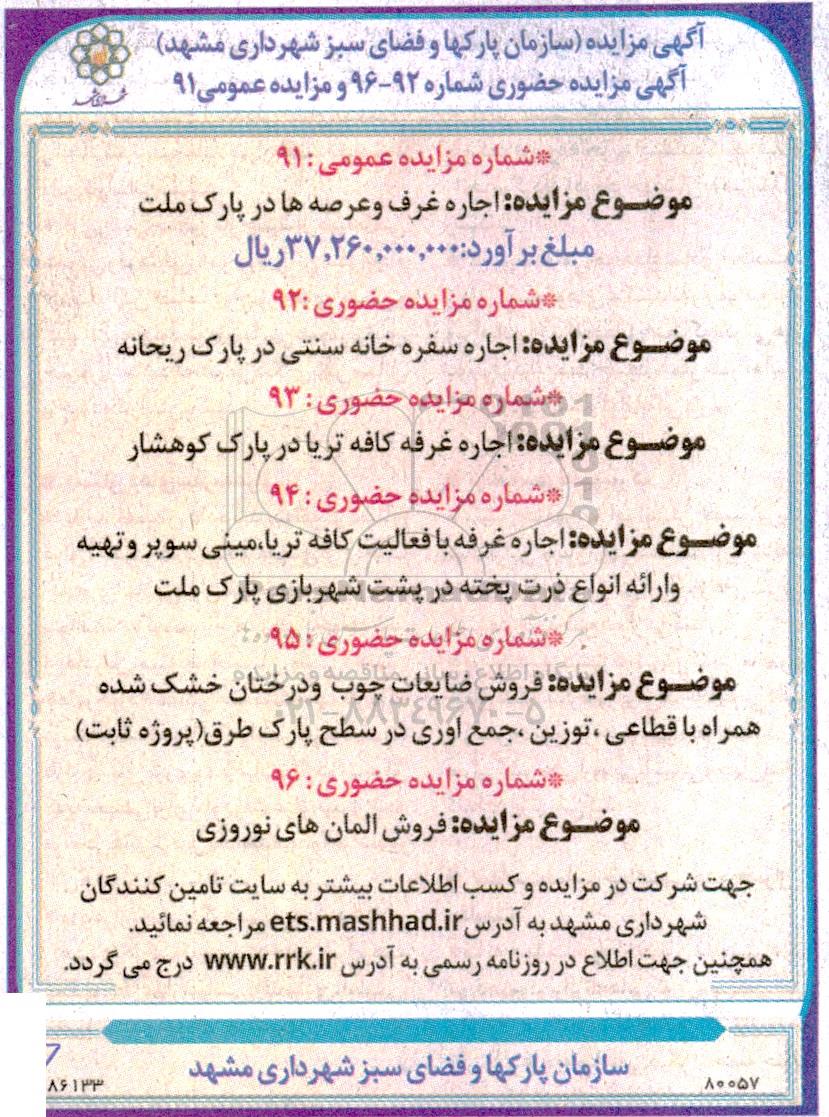 آگهی مزایده (سازمان پارکها و فضای سبز شهرداری مشهد)
آگهی مزایده حضوری شماره ۹۲-۹۶ و مزایده عمومی ۹۱
*شماره مزایده عمومی :۹۱
موضوع مزایده: اجاره غرف وعرصه ها در پارک ملت
مبلغ برآورد:۳۷,۲۶۰,۰۰۰,۰۰۰ریال
*شماره مزایده حضوری :۹۲
موضوع مزایده: اجاره سفره خانه سنتی در پارک ریحانه
*شماره مزایده حضوری : ۹۳
موضوع مزایده: اجاره غرفه کافه تریا در پارک کوهشار
*شماره مزایده حضوری : ۹۴
موضوع مزایده: اجاره غرفه با فعالیت کافه تریا،مینی سوپر و تهیه
وارائه انواع ذرت پخته در پشت شهربازی پارک ملت
*شماره مزایده حضوری : ۹۵
موضوع مزایده: فروش ضایعات چوب ودرختان خشک شده
همراه با قطاعی ،توزین ،جمع اوری در سطح پارک طرق(پروژه ثابت)
*شماره مزایده حضوری : ۹۶
موضوع مزایده: فروش المان های نوروزی
جهت شرکت در مزایده و کسب اطلاعات بیشتر به سایت تامین کنندگان
شهرداری مشهد به آدرس ets.mashhad.ir مراجعه نمائید.
همچنین جهت اطلاع در روزنامه رسمی به آدرس www.rrk.ir درج می گردد.
سازمان پارکها و فضای سبز شهرداری مشهد
۸۰۰۵۷
۸۶۱۳۳
پایگاه اطلاع رسانی مناقصه و مزایده
۰۲۱-۸۸۳۴۹۶۷۰-۵